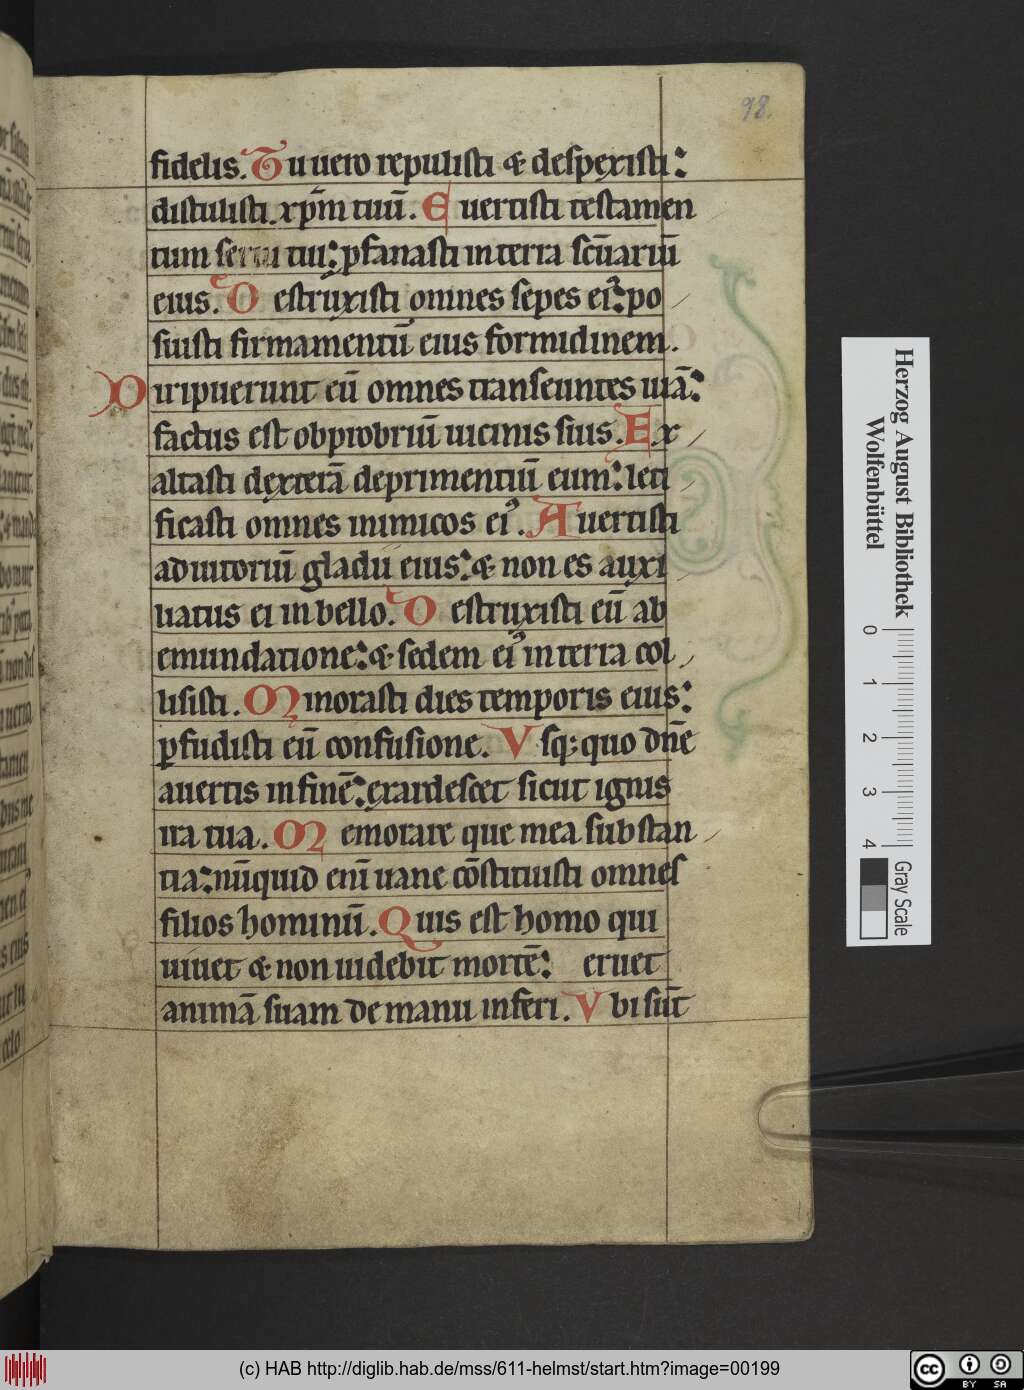 98.
fidelis. Tu uero repulisti & despexisti:
distulisti xp̄m tuū. Euertisti testamen
tum serui tui: ꝓfanasti in terra scūariū
eius. Destruxisti omnes sepes eiꝰ: po
suisti firmamentū eius formidinem.
Diripuerunt eū omnes transeuntes uiā:
factus est obprobriū uicinis suis. Ex
altasti dexterā deprimentiū eum: leti
ficasti omnes inimicos eiꝰ. Auertisti
adiutoriū gladii eius: & non es auxi
liatus ei in bello. Destruxisti eū ab
emundatione: & sedem eiꝰ in terra col
lisisti. Minorasti dies temporis eius:
ꝑfudisti eū confusione. Vsq; quo dn̄e
auertis in finē: exardescet sicut ignis
ira tua. Memorare que mea substan
tia: nūquid eni uane cōstituisti omnes
filios hominū. Quis est homo qui
uiuet & non uidebit mortē: eruet
animā suam de manu inferi. Vbi sūt
Herzog August Bibliothek
Wolfenbüttel
0 1 2 3 4
Gray Scale
(c) HAB http://diglib.hab.de/mss/611-helmst/start.htm?image=00199
cc BY SA